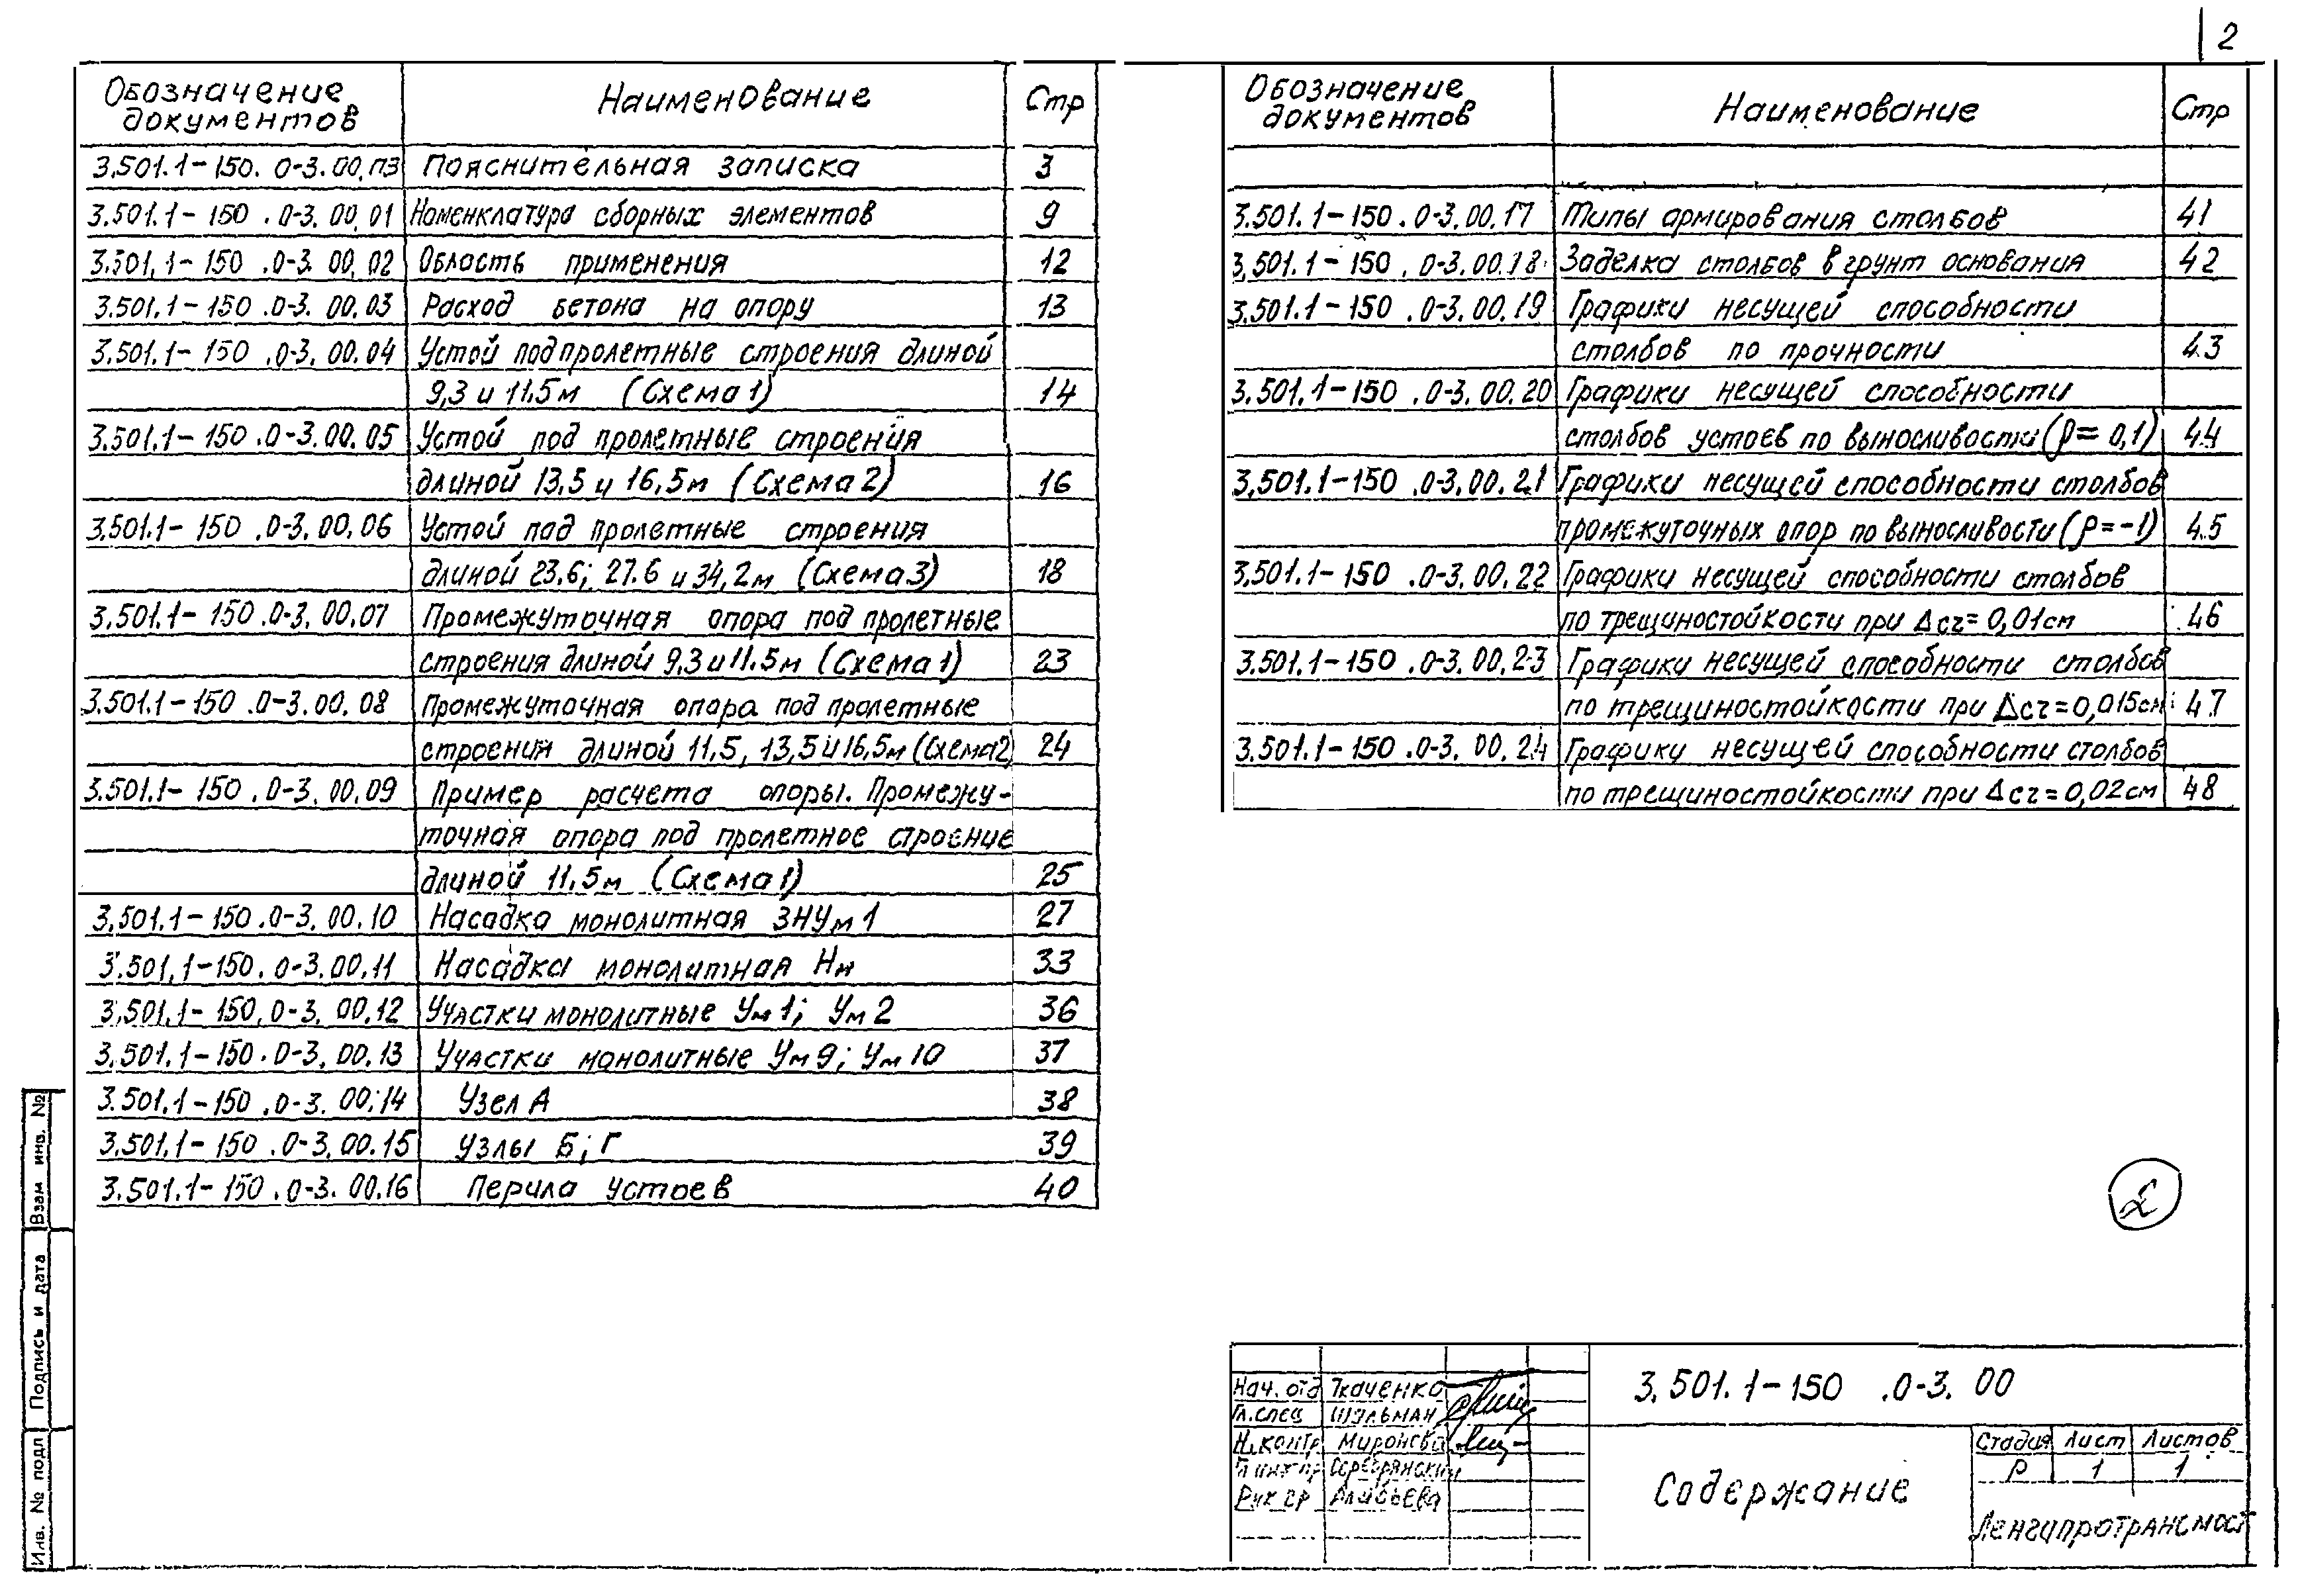 2
Обозначение документов Наименование Стр
3.501.1-150.0-3.00.ПЗ Пояснительная записка 3
3.501.1-150.0-3.00.01 Номенклатура сборных элементов 9
3.501.1-150.0-3.00.02 Область применения 12
3.501.1-150.0-3.00.03 Расход бетона на опору 13
3.501.1-150.0-3.00.04 Устой под пролетные строения длиной
9,3 и 11.5м (Схема 1) 14
3.501.1-150.0-3.00.05 Устой под пролетные строения
длиной 13,5 и 16,5м (Схема 2) 16
3.501.1-150.0-3.00.06 Устой под пролетные строения
длиной 23.6; 27.6 и 34,2м (Схема 3) 18
3.501.1-150.0-3.00.07 Промежуточная опора под пролетные
строения длиной 9,3 и 11.5м (Схема 1) 23
3.501.1-150.0-3.00.08 Промежуточная опора под пролетные
строения длиной 11,5, 13,5 и 16,5м (Схема 2) 24
3.501.1-150.0-3.00.09 Пример расчета опоры. Промежу-
точная опора под пролетное строение
длиной 11.5м (Схема 1) 25
3.501.1-150.0-3.00.10 Насадка монолитная 3НУм1 27
3.501.1-150.0-3.00.11 Насадка монолитная Нм 33
3.501.1-150.0-3.00.12 Участки монолитные Ум1; Ум2 36
3.501.1-150.0-3.00.13 Участки монолитные Ум9; Ум10 37
3.501.1-150.0-3.00.14 Узел А 38
3.501.1-150.0-3.00.15 Узлы Б; Г 39
3.501.1-150.0-3.00.16 Перила устоев 40
Обозначение документов Наименование Стр
3.501.1-150.0-3.00.17 Типы армирования столбов 41
3.501.1-150.0-3.00.18 Заделка столбов в грунт основания 42
3.501.1-150.0-3.00.19 Графики несущей способности
столбов по прочности 43
3.501.1-150.0-3.00.20 Графики несущей способности
столбов устоев по выносливости (ρ=0,1) 44
3.501.1-150.0-3.00.21 Графики несущей способности столбов
промежуточных опор по выносливости (ρ=-1) 45
3.501.1-150.0-3.00.22 Графики несущей способности столбов
по трещиностойкости при Δcr=0,01см 46
3.501.1-150.0-3.00.23 Графики несущей способности столбов
по трещиностойкости при Δcr=0,015см 47
3.501.1-150.0-3.00.24 Графики несущей способности столбов
по трещиностойкости при Δcr=0,02см 48
2
Взам инв. №
Подпись и дата
Инв. № подл
Нач. отд Ткаченко
Гл. спец Шульман
Н.контр Миронова
Гл инж пр Серебрянский
Рук гр Алябьева
3.501.1-150.0-3.00
Содержание
Стадия Лист Листов
Р 1 1
Ленгипротрансмост